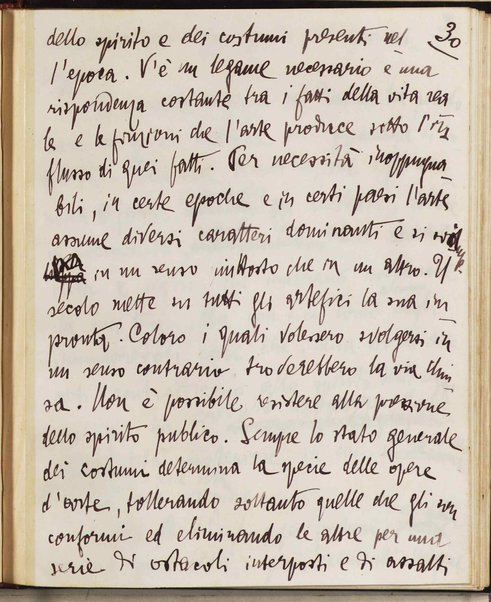 30
dello spirito e dei costumi presenti nel
l'epoca. V'è un legame necessario e una
rispondenza costante tra i fatti della vita rea
le e le finzioni che l'arte produce sotto l'in
flusso di quei fatti. Per necessità inoppugna
bili, in certe epoche e in certi paesi l'arte
assume diversi caratteri dominanti e si svilup
pa in un senso piuttosto che in un altro. Il
secolo mette su tutti gli artefici la sua im
pronta. Coloro i quali volessero svolgersi in
un senso contrario troverebbero la via chiu
sa. Non è possibile resistere alla pressione
dello spirito publico. Sempre lo stato generale
dei costumi determina la specie delle opere
d'arte, tollerando soltanto quelle che gli son
conformi ed eliminando le altre per una
serie di ostacoli interposti e di assalti